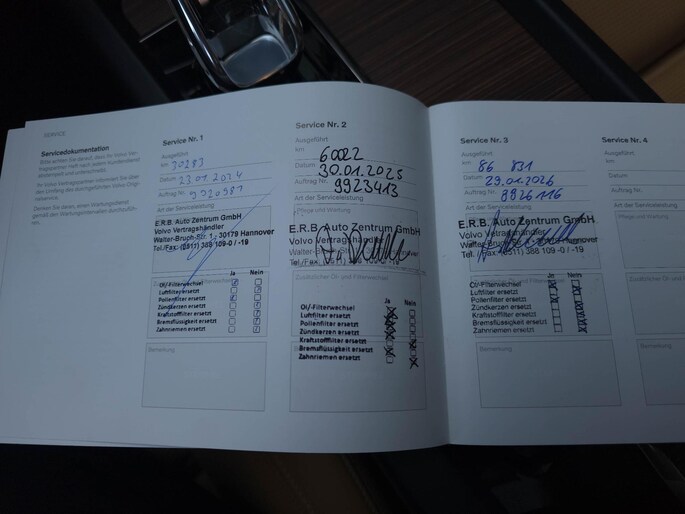 SERVICE
Servicedokumentation
Service Nr. 1
Ausgeführt
km 30283
Datum 23.01.2024
Auftrag Nr.
Art der Serviceleistung
E.R.B. Auto Zentrum GmbH
Volvo Vertragshändler
Walter-Bruch-Str. 1 · 30179 Hannover
Tel./Fax: (0511) 388 109 -0 / -19
Ja Nein
Öl/-Filterwechsel
Luftfilter ersetzt
Pollenfilter ersetzt
Zündkerzen ersetzt
Kraftstofffilter ersetzt
Bremsflüssigkeit ersetzt
Zahnriemen ersetzt
Bemerkung
Service Nr. 2
Ausgeführt
km 60022
Datum 30.01.2025
Auftrag Nr. 9923413
Art der Serviceleistung
Pflege und Wartung
E.R.B. Auto Zentrum GmbH
Volvo Vertragshändler
Walter-Bruch-Str.
Tel./Fax: (0511) 388 109 -0 / -19
Zusätzlicher Öl- und Filterwechsel
Ja Nein
Öl/-Filterwechsel
Luftfilter ersetzt
Pollenfilter ersetzt
Zündkerzen ersetzt
Kraftstofffilter ersetzt
Bremsflüssigkeit ersetzt
Zahnriemen ersetzt
Bemerkung
Service Nr. 3
Ausgeführt
km 86 831
Datum 29.01.2026
Auftrag Nr. 8926116
Art der Serviceleistung
E.R.B. Auto Zentrum GmbH
Volvo Vertragshändler
Walter-Bruch-Str. Hannover
Tel./Fax: (0511) 388 109 -0 / -19
Zusätzlicher Öl- und Filterwechsel
Ja Nein
Öl/-Filterwechsel
Luftfilter ersetzt
Pollenfilter ersetzt
Zündkerzen ersetzt
Kraftstofffilter ersetzt
Bremsflüssigkeit ersetzt
Zahnriemen ersetzt
Bemerkung
Service Nr. 4
Ausgeführt
km
Datum
Auftrag Nr.
Art der Serviceleistung
Pflege und Wartung
Zusätzlicher Öl-
Bemerkung